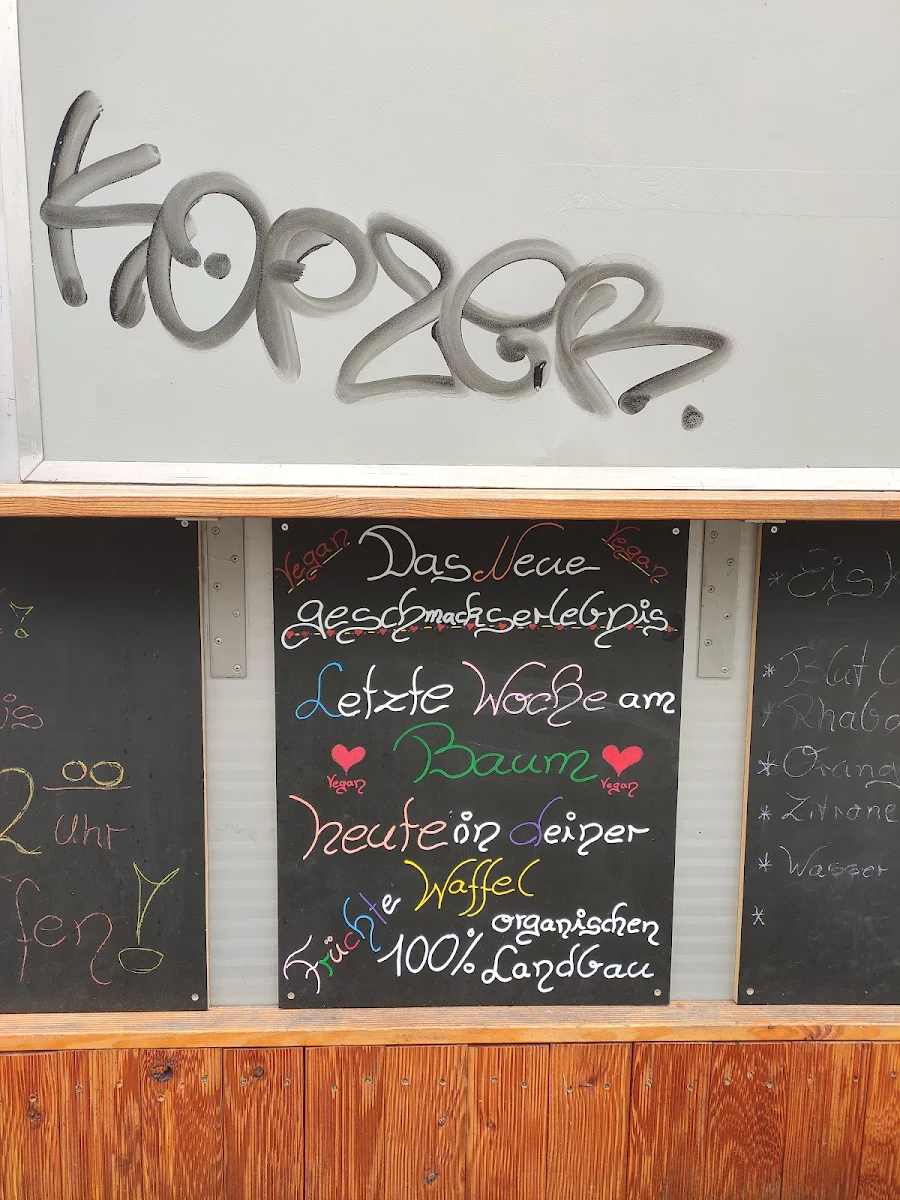 KOPZER.
Vegan Das Neue Vegan
geschmackserlebnis
Letzte Woche am
Baum
Vegan Vegan
heute in deiner
Waffel
Früchte
100% organischen
Landbau
is
2 00
Uhr
fen!
Eis
* Blut O
* Rhaba
* Orang
* Zitrone
* Wasser
*